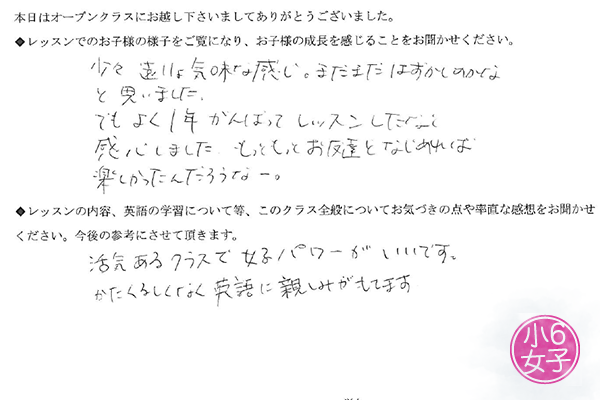 本日はオープンクラスにお越し下さいましてありがとうございました。
◆レッスンでのお子様の様子をご覧になり、お子様の成長を感じることをお聞かせください。
少々 遠りょ気味な感じ。まだまだはずかしのかな
と思いました。
でもよく1年がんばってレッスンしたなと
感心しました。もっともっとお友達となじめれば
楽しかったんだろうなー。
◆レッスンの内容、英語の学習について等、このクラス全般についてお気づきの点や率直な感想をお聞かせ
ください。今後の参考にさせて頂きます。
活気あるクラスで女子パワーがいいです。
かたくるしくなく英語に親しみがもてます
小6
女子